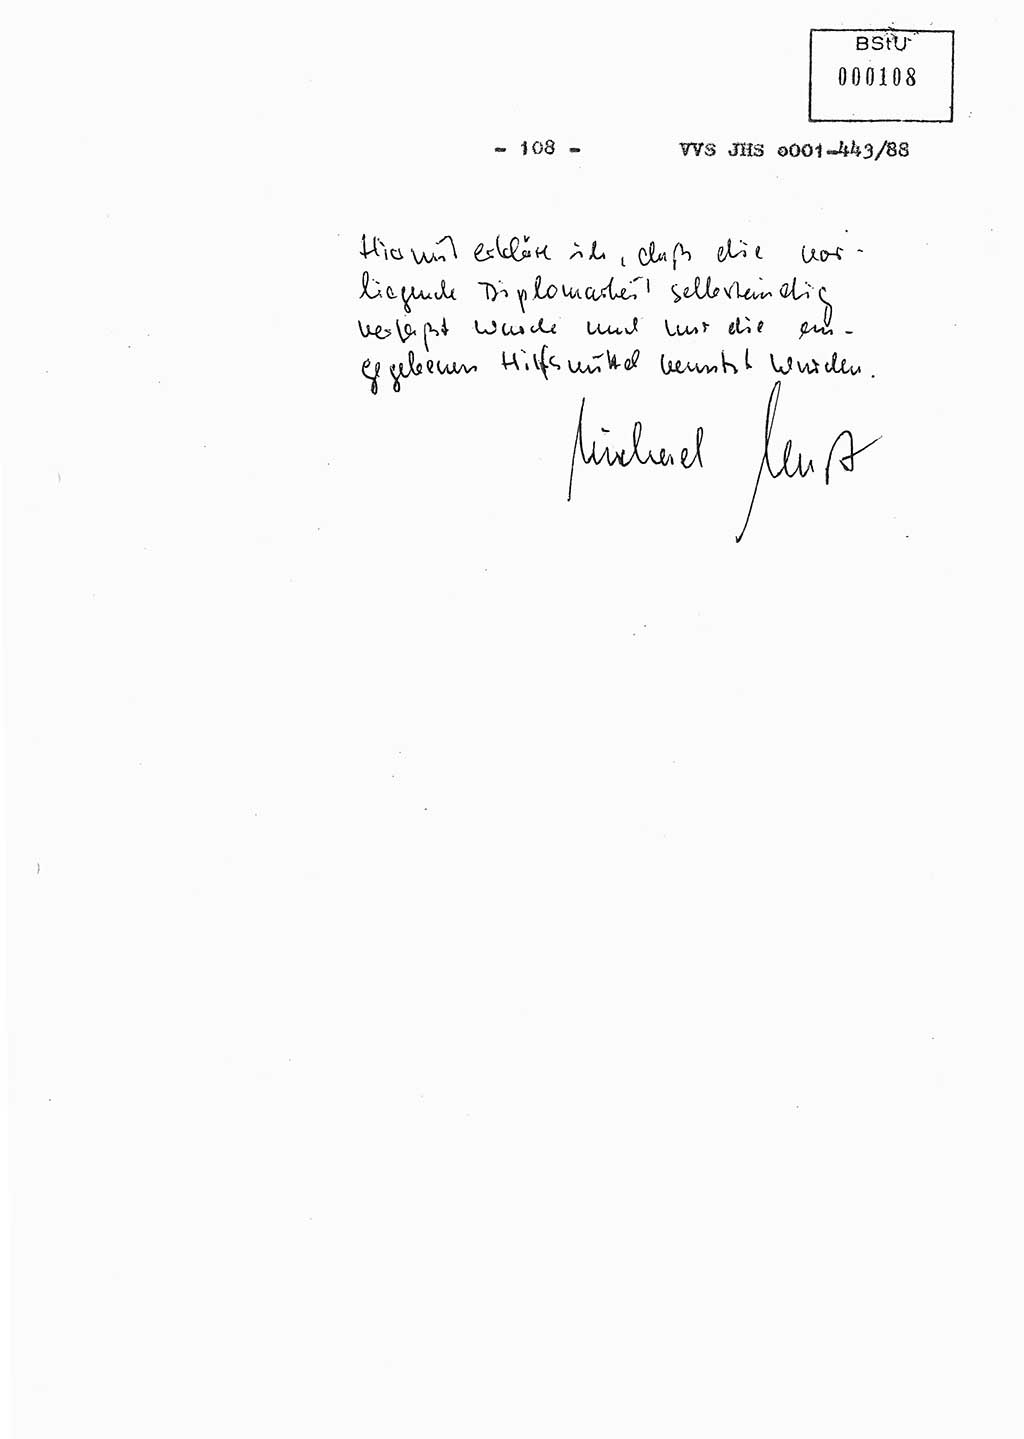 BStU
000108
- 108 - VVS JHS o001-443/88
Hiermit erkläre ich, daß die vor-
liegende Diplomarbeit selbständig
verfaßt wurde und nur die an-
gegebenen Hilfsmittel benutzt wurden.
Michael